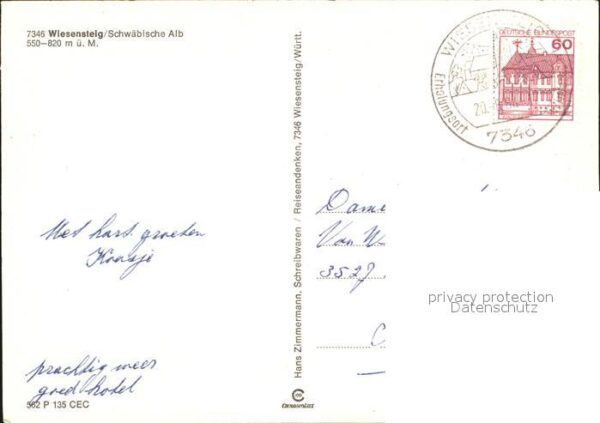 7346 Wiesensteig/Schwäbische Alb
550–820 m ü. M.
Met hart. groeten
prachtig weer
goed hotel
562 P 135 CEC
Hans Zimmermann, Schreibwaren / Reiseandenken, 7346 Wiesensteig/Württ.
DEUTSCHE BUNDESPOST
60
Erholungsort
20.
7346
Dame
Van
3527
C
privacy protection
Datenschutz